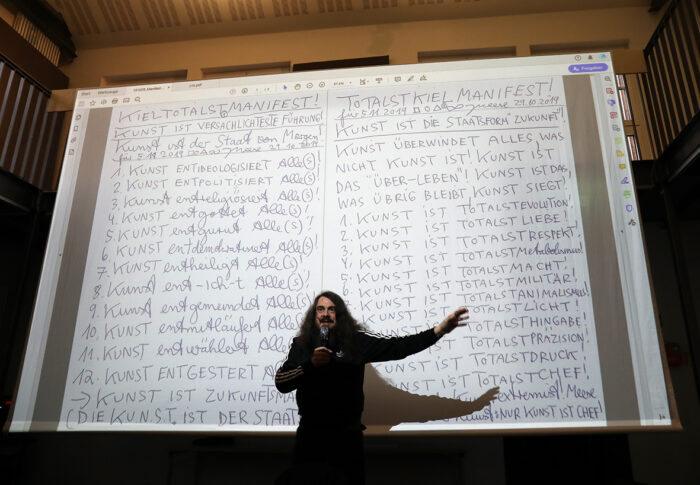 KIEL TOTALST MANIFEST!
KUNST IST VERSACHLICHTESTE FÜHRUNG!
Kunst ist der Staat von Morgen!
für 5.11.2019 Meese 29.10.2019
1. KUNST ENTIDEOLOGISIERT Alle(S)!
2. KUNST ENTPOLITISIERT Alle(S)!
3. Kunst entreligiösiert Alle(S)!
4. KUNST entgottet Alle(S)!
5. KUNST entgurut Alle(S)!
6. KUNST entdemokratisiert Alle(S)!
7. KUNST entheiligt Alle(S)!
8. Kunst ent-ich-t Alle(S)!
9. KUNST entgemeindet Alle(S)!
10. KUNST entmitläufert Alle(S)!
11. KUNST entwählert Alle(S)!
12. KUNST ENTGESTERT
→ KUNST IST ZUKUNFTSMA
(DIE KUNST IST DER STAAT
TOTALST KIEL MANIFEST!
für 5.11.2019 Meese 29.10.2019
KUNST IST DIE STAATSFORM "ZUKUNFT"!
KUNST ÜBERWINDET ALLES, WAS
NICHT KUNST IST! KUNST IST
DAS "ÜBER-LEBEN"! KUNST IST DAS,
WAS ÜBRIG BLEIBT, KUNST SIEGT!
1. KUNST IST TOTALSTEVOLUTION!
2. KUNST IST TOTALST LIEBE!
3. KUNST IST TOTALSTRESPEKT!
4. KUNST IST TOTALSTMetabolismus!
5. KUNST IST TOTALSTMACHT!
6. KUNST IST TOTALSTMILITÄR!
KUNST IST TOTALSTANIMALISMUS!
KUNST IST TOTALSTLICHT!
KUNST IST TOTALSTHINGABE!
KUNST IST TOTALSTPRÄZISION!
KUNST IST TOTALSTDRUCK!
KUNST IST TOTALSTCHEF!
Meese
NUR KUNST IST CHEF!